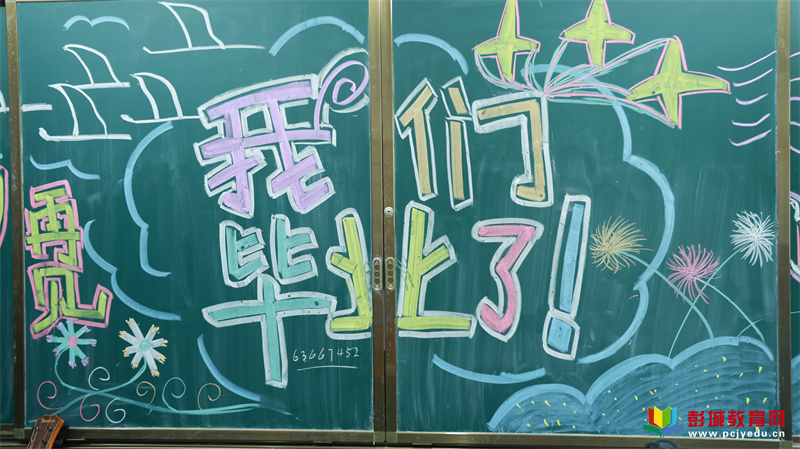 我们
毕业了!
再见
63667452
彭城教育网
www.pcjyedu.cn